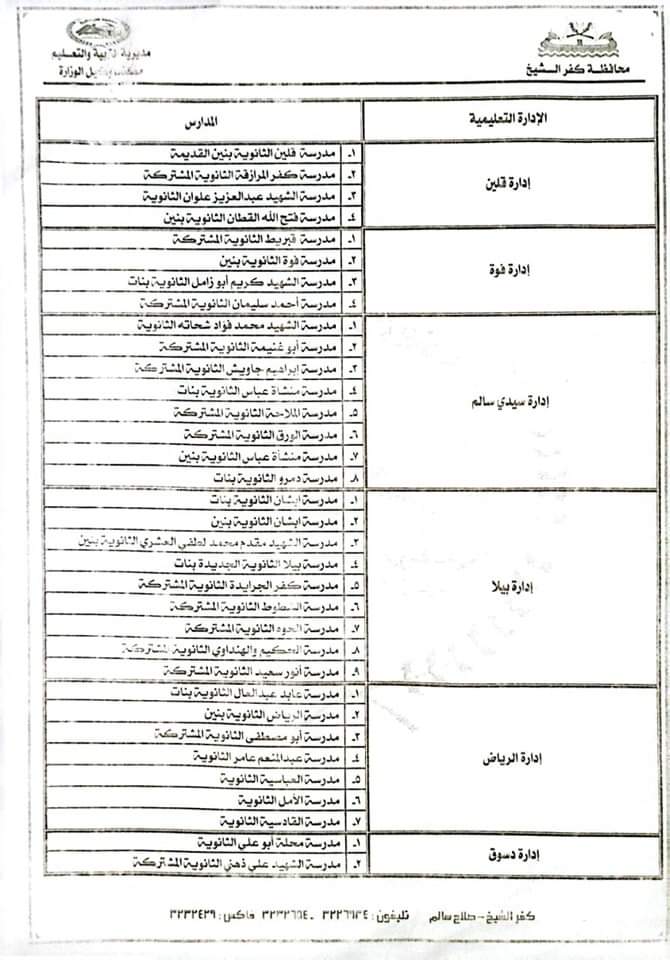 محافظة كفر الشيخ
مديرية التربية والتعليم
مكتب وكيل الوزارة
الإدارة التعليمية
المدارس
إدارة قلين
١ـ مدرسة قلين الثانوية بنين القديمة
٢ـ مدرسة كفر المرازقة الثانوية المشتركة
٣ـ مدرسة الشهيد عبدالعزيز علوان الثانوية
٤ـ مدرسة فتح الله القطان الثانوية بنين
إدارة فوة
١ـ مدرسة قبريط الثانوية المشتركة
٢ـ مدرسة فوة الثانوية بنين
٣ـ مدرسة الشهيد كريم أبو زامل الثانوية بنات
٤ـ مدرسة أحمد سليمان الثانوية المشتركة
إدارة سيدي سالم
١ـ مدرسة الشهيد محمد فؤاد شحاته الثانوية
٢ـ مدرسة أبو غنيمة الثانوية المشتركة
٣ـ مدرسة ابراهيم جاويش الثانوية المشتركة
٤ـ مدرسة منشاة عباس الثانوية بنات
٥ـ مدرسة الملاحة الثانوية المشتركة
٦ـ مدرسة الورق الثانوية المشتركة
٧ـ مدرسة منشأة عباس الثانوية بنين
٨ـ مدرسة دمرو الثانوية بنات
إدارة بيلا
١ـ مدرسة ابشان الثانوية بنات
٢ـ مدرسة ابشان الثانوية بنين
٣ـ مدرسة الشهيد مقدم محمد لطفي العشري الثانوية بنين
٤ـ مدرسة بيلا الثانوية الجديدة بنات
٥ـ مدرسة كفر الجرايدة الثانوية المشتركة
٦ـ مدرسة السطوط الثانوية المشتركة
٧ـ مدرسة الحوه الثانوية المشتركة
٨ـ مدرسة الحكيم والهنداوي الثانوية المشتركة
٩ـ مدرسة أنور سعيد الثانوية المشتركة
إدارة الرياض
١ـ مدرسة عابد عبدالعال الثانوية بنات
٢ـ مدرسة الرياض الثانوية بنين
٣ـ مدرسة أبو مصطفى الثانوية المشتركة
٤ـ مدرسة عبدالمنعم عامر الثانوية
٥ـ مدرسة العباسية الثانوية
٦ـ مدرسة الأمل الثانوية
٧ـ مدرسة القادسية الثانوية
إدارة دسوق
١ـ مدرسة محلة أبو علي الثانوية
٢ـ مدرسة الشهيد علي ذهني الثانوية المشتركة
كفر الشيخ - صلاح سالم تليفون : فاكس : ٣٢٣٢٤٢٩